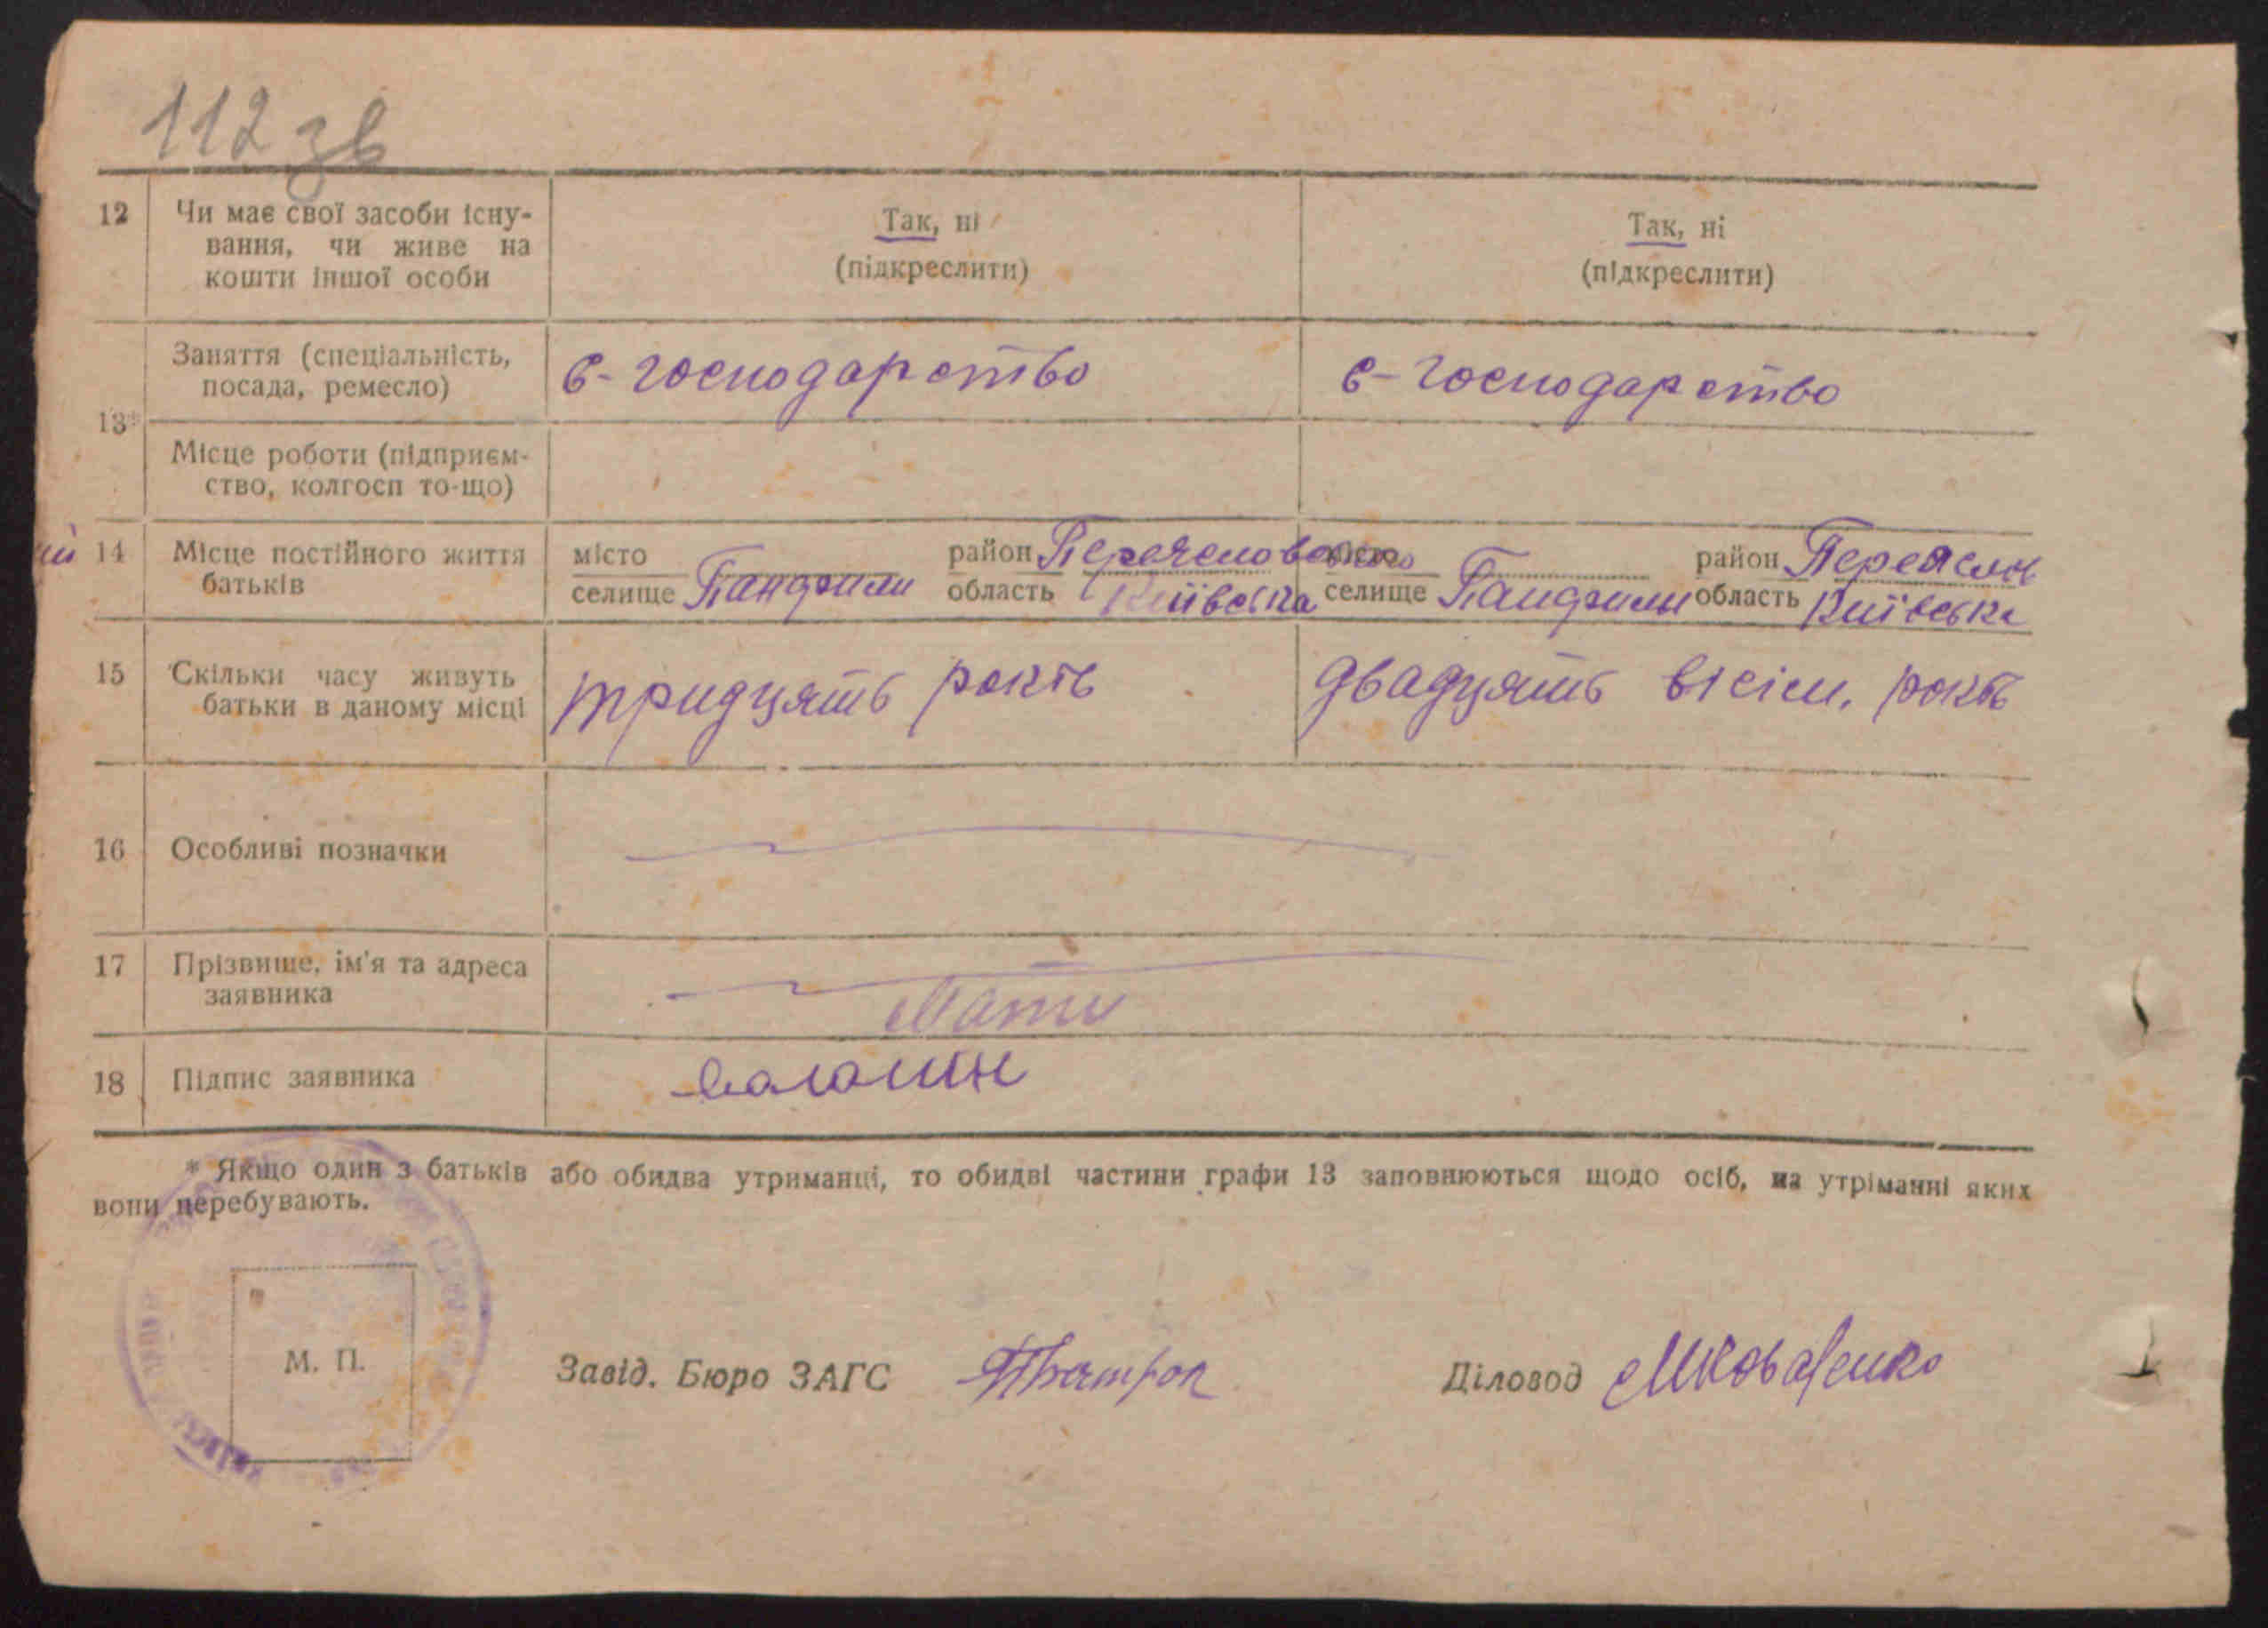 112 зв
12 Чи має свої засоби існу- Так, ні Так, ні
вання, чи живе на (підкреслити) (підкреслити)
кошти іншої особи
Заняття (спеціальність, с-господарство с-господарство
посада, ремесло)
13*
Місце роботи (підприєм-
ство, колгосп то-що)
14 Місце постійного життя місто район місто район Переяслов
батьків селище Панфили область Київська селище Панфили область Київська
15 Скільки часу живуть тридцять років двадцять вісім років
батьки в даному місці
16 Особливі позначки
17 Прізвише, ім'я та адреса
заявника Мати
18 Підпис заявника
* Якщо один з батьків або обидва утриманці, то обидві частини графи 13 заповнюються щодо осіб, на утріманні яких
вони перебувають.
М. П. Завід. Бюро ЗАГС Діловод МКоваленко